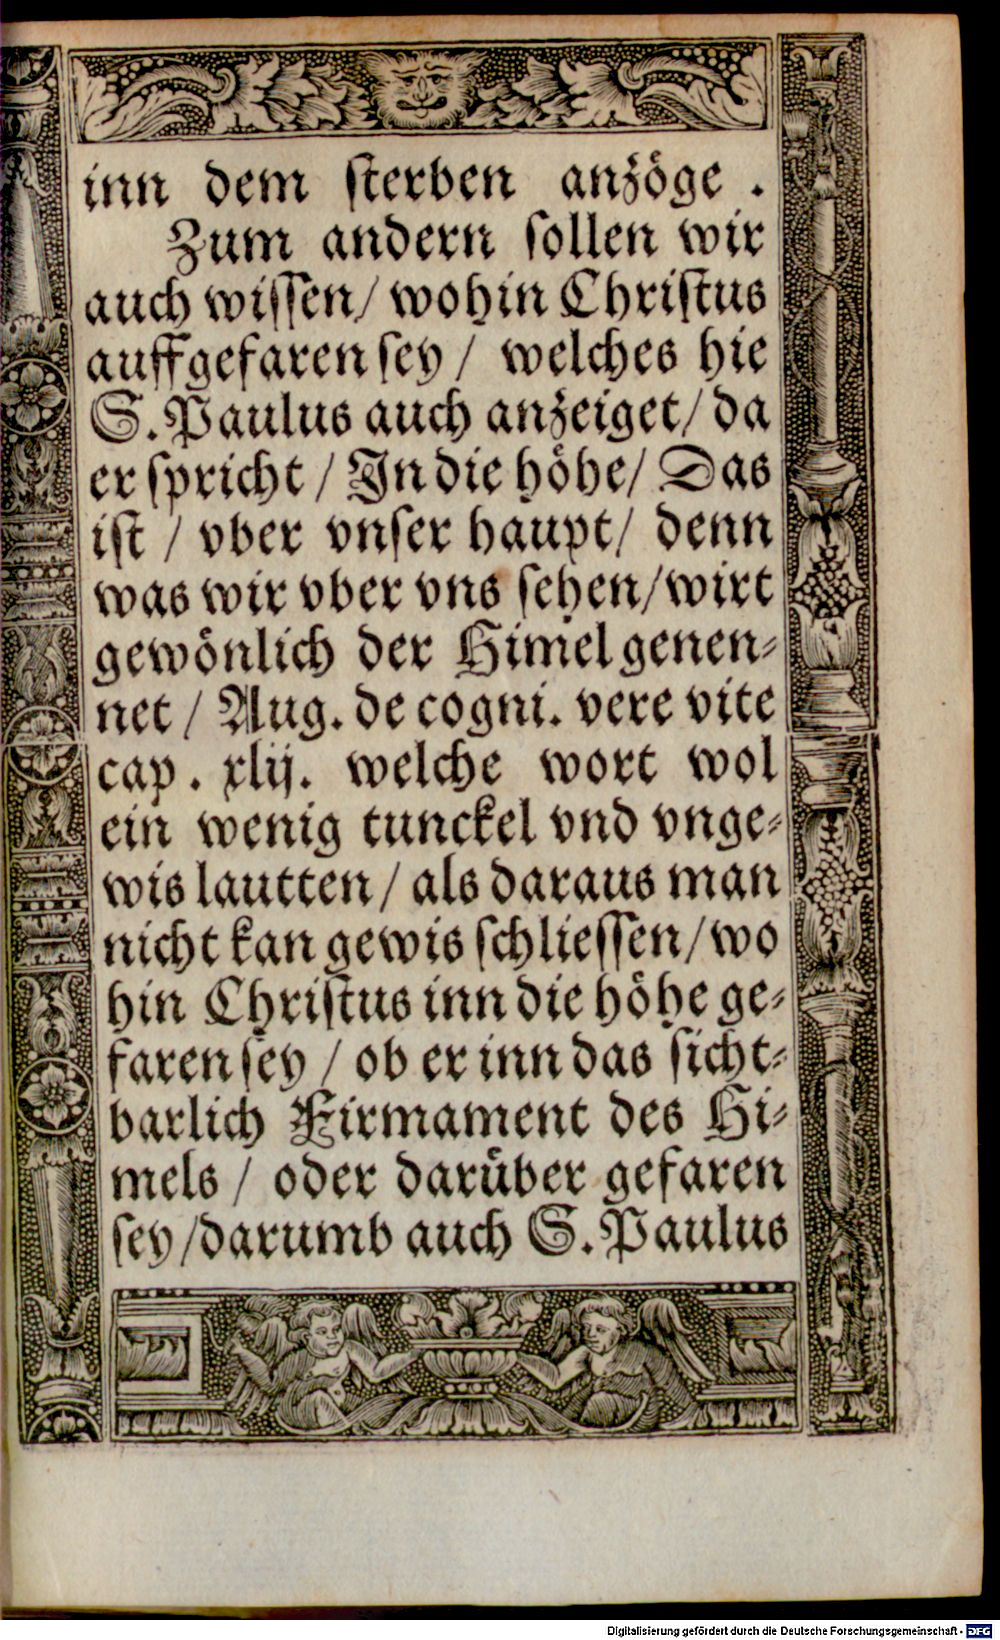 inn dem ſterben anzöge .
Zum andern ſollen wir
auch wiſſen/ wohin Chriſtus
auffgefaren ſey / welches hie
S. Paulus auch anzeiget/ da
er ſpricht / In die höhe/ Das
iſt / vber vnſer haupt/ denn
was wir vber vns ſehen/ wirt
gewönlich der Himel genen-
net / Aug. de cogni. vere vite
cap . xlij. welche wort wol
ein wenig tunckel vnd vnge-
wis lautten / als daraus man
nicht kan gewis ſchlieſſen/ wo
hin Chriſtus inn die höhe ge-
faren ſey / ob er inn das ſicht-
barlich Firmament des Hi-
mels / oder darüber gefaren
ſey /darumb auch S. Paulus
Digitalisierung gefördert durch die Deutsche Forschungsgemeinschaft - DFG